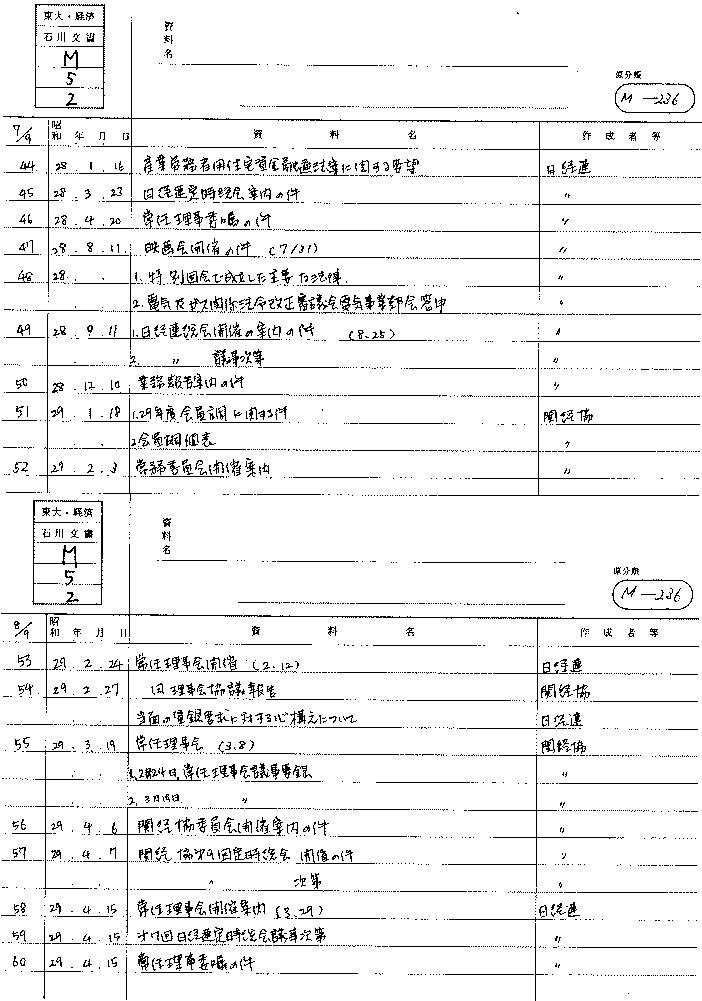 東大・経済
石川文書
M
5
2
資料名
原分類
M-236
7/9 昭和 年 月 日 資料名 作成者等
44 28.1.16 産業労務者用住宅資金融通法案に関する要望 日経連
45 28.3.23 日経連定時総会案内の件 〃
46 28.4.20 常任理事委嘱の件 〃
47 28.8.11 映画会開催の件 (7/31) 〃
48 28. . 1.特別国会で成立した主要な法律 〃
2.電気及ガス関係法令改正審議会電気事業部会答申 〃
49 28.9.11 1.日経連総会開催の案内の件 (8.25) 〃
2. 〃 議事次第 〃
50 28.12.10 業務報告案内の件 〃
51 29.1.18 1.29年度会員調に関する件 関経協
2.会員調個表 〃
52 29.2.3 常務委員会開催案内 〃
東大・経済
石川文書
M
5
2
資料名
原分類
M-236
8/9 昭和 年 月 日 資料名 作成者等
53 29.2.24 常任理事会開催 (2.12) 日経連
54 29.2.27 理事会協議報告 関経協
当面の賃銀要求に対する心構えについて 日経連
55 29.3.19 常任理事会 (3.8) 関経協
1.2月24日,常任理事会議事要録 〃
2.3月18日 〃 〃
56 29.4.6 関経協委員会開催案内の件 〃
57 29.4.7 関経協第9回定時総会開催の件 〃
〃 次第 〃
58 29.4.15 常任理事会開催案内 (3.29) 日経連
59 29.4.15 オ7回日経連定時総会議事次第 〃
60 29.4.15 常任理事委嘱の件 〃